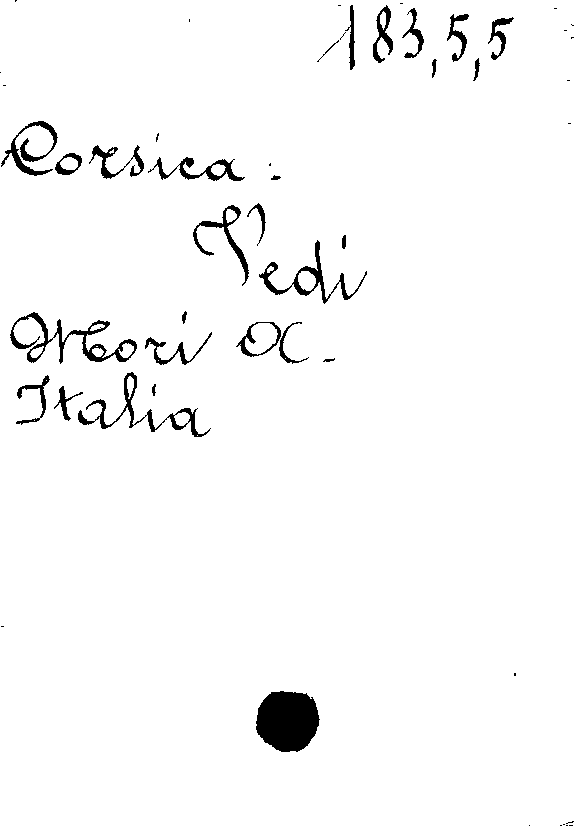 183,5,5
Corsica.
Vedi
Mori A.
Italia